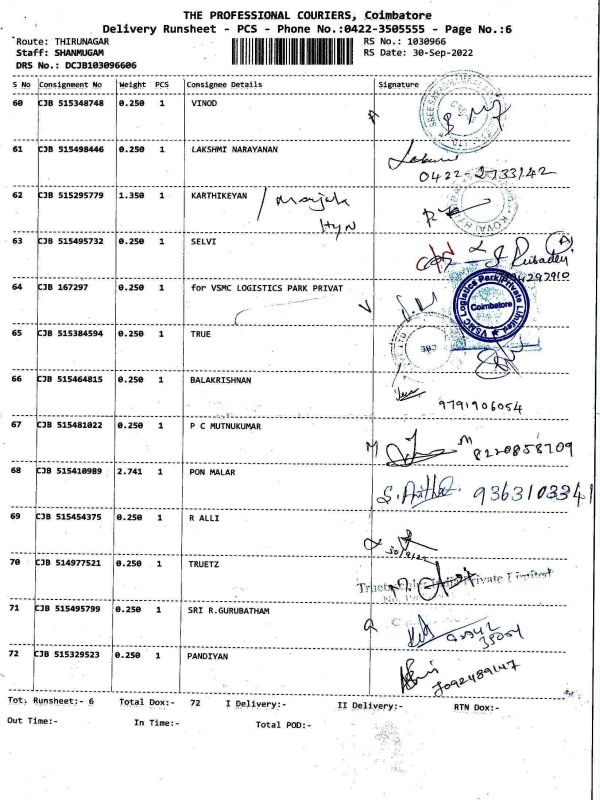 THE PROFESSIONAL COURIERS, Coimbatore
Delivery Runsheet - PCS - Phone No.:0422-3505555 - Page No.:6
Route: THIRUNAGAR RS No.: 1030966
Staff: SHANMUGAM RS Date: 30-Sep-2022
DRS No.: DCJB103096606
S No Consignment No Weight PCS Consignee Details Signature
60 CJB 515348748 0.250 1 VINOD
61 CJB 515498446 0.250 1 LAKSHMI NARAYANAN
0422-2733142
62 CJB 515295779 1.350 1 KARTHIKEYAN
63 CJB 515495732 0.250 1 SELVI
64 CJB 167297 0.250 1 for VSMC LOGISTICS PARK PRIVAT
VSMC Logistics Park Private Limited
Coimbatore
65 CJB 515384594 0.250 1 TRUE
CBE
66 CJB 515464815 0.250 1 BALAKRISHNAN
9791906054
67 CJB 515481022 0.250 1 P C MUTNUKUMAR
8220858709
68 CJB 515410989 2.741 1 PON MALAR
9363103341
69 CJB 515454375 0.250 1 R ALLI
70 CJB 514977521 0.250 1 TRUETZ
Private Limited
71 CJB 515495799 0.250 1 SRI R.GURUBATHAM
72 CJB 515329523 0.250 1 PANDIYAN
7092489147
Tot. Runsheet:- 6 Total Dox:- 72 I Delivery:- II Delivery:- RTN Dox:-
Out Time:- In Time:- Total POD:-